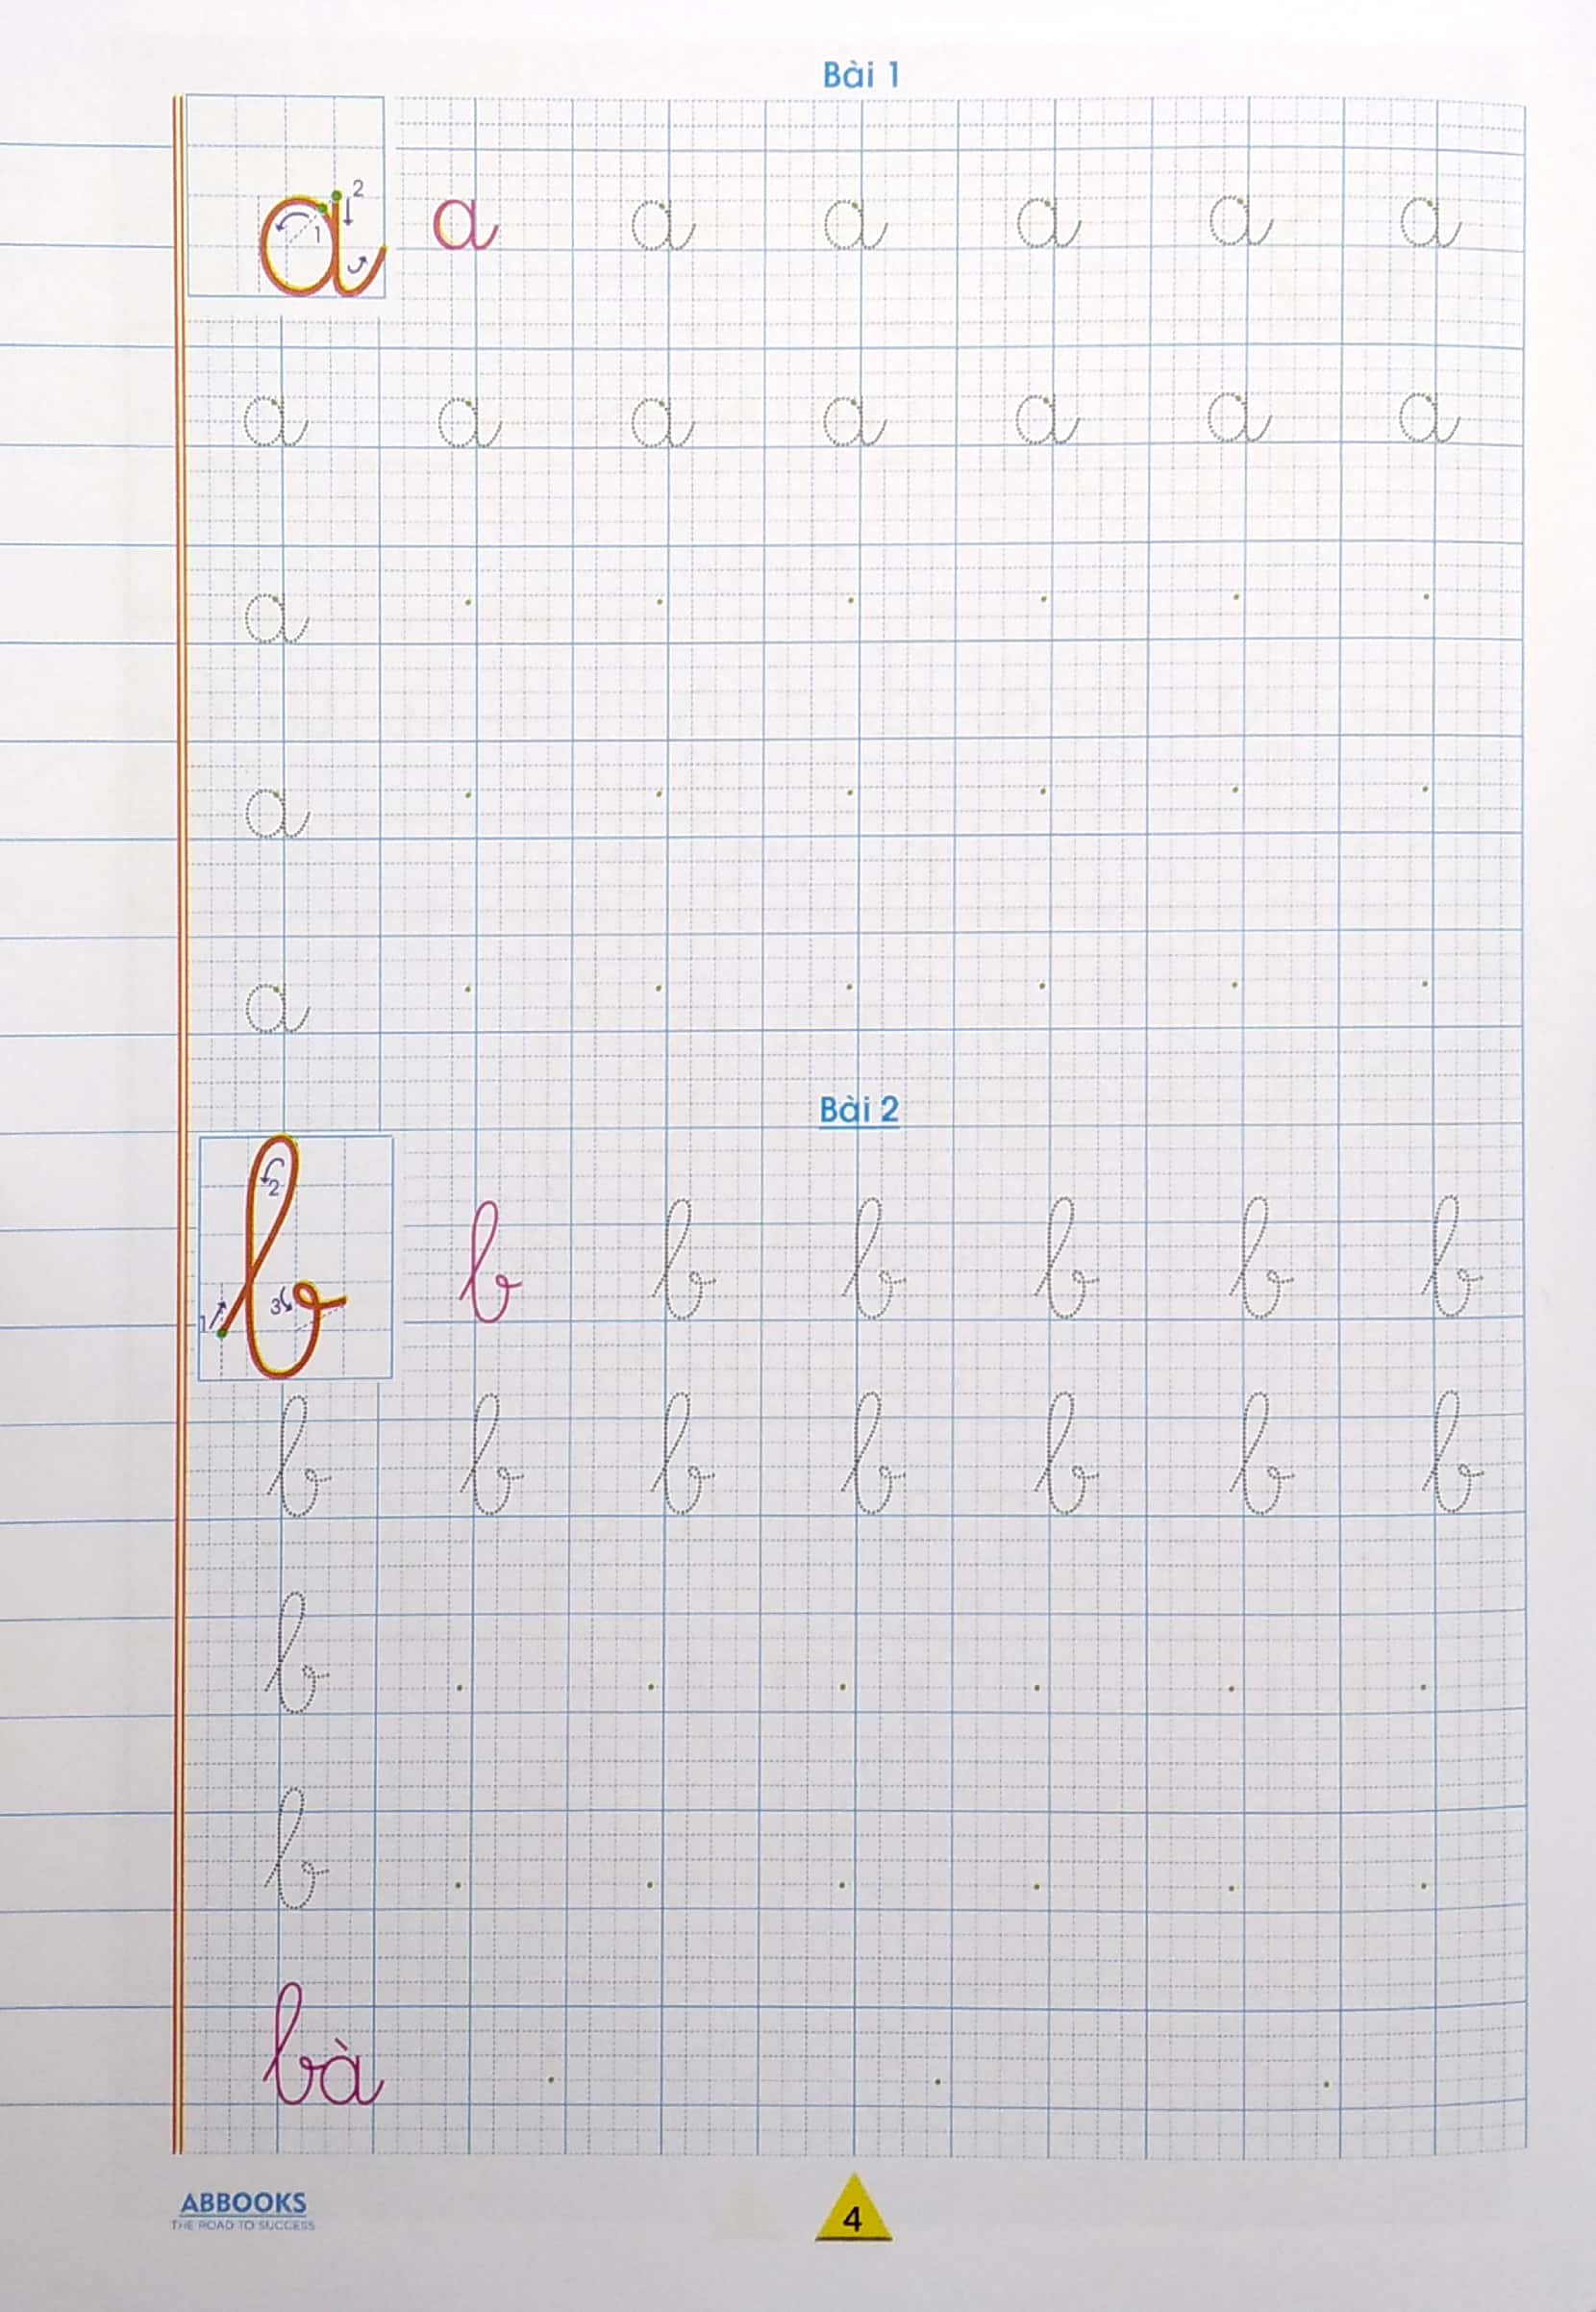 Bài 1
a 1 2 a a a a a a
a a a a a a a
a
a
a
Bài 2
b 1 2 3 b b b b b b
b b b b b b b
b
b
bà
ABBOOKS
THE ROAD TO SUCCESS
4